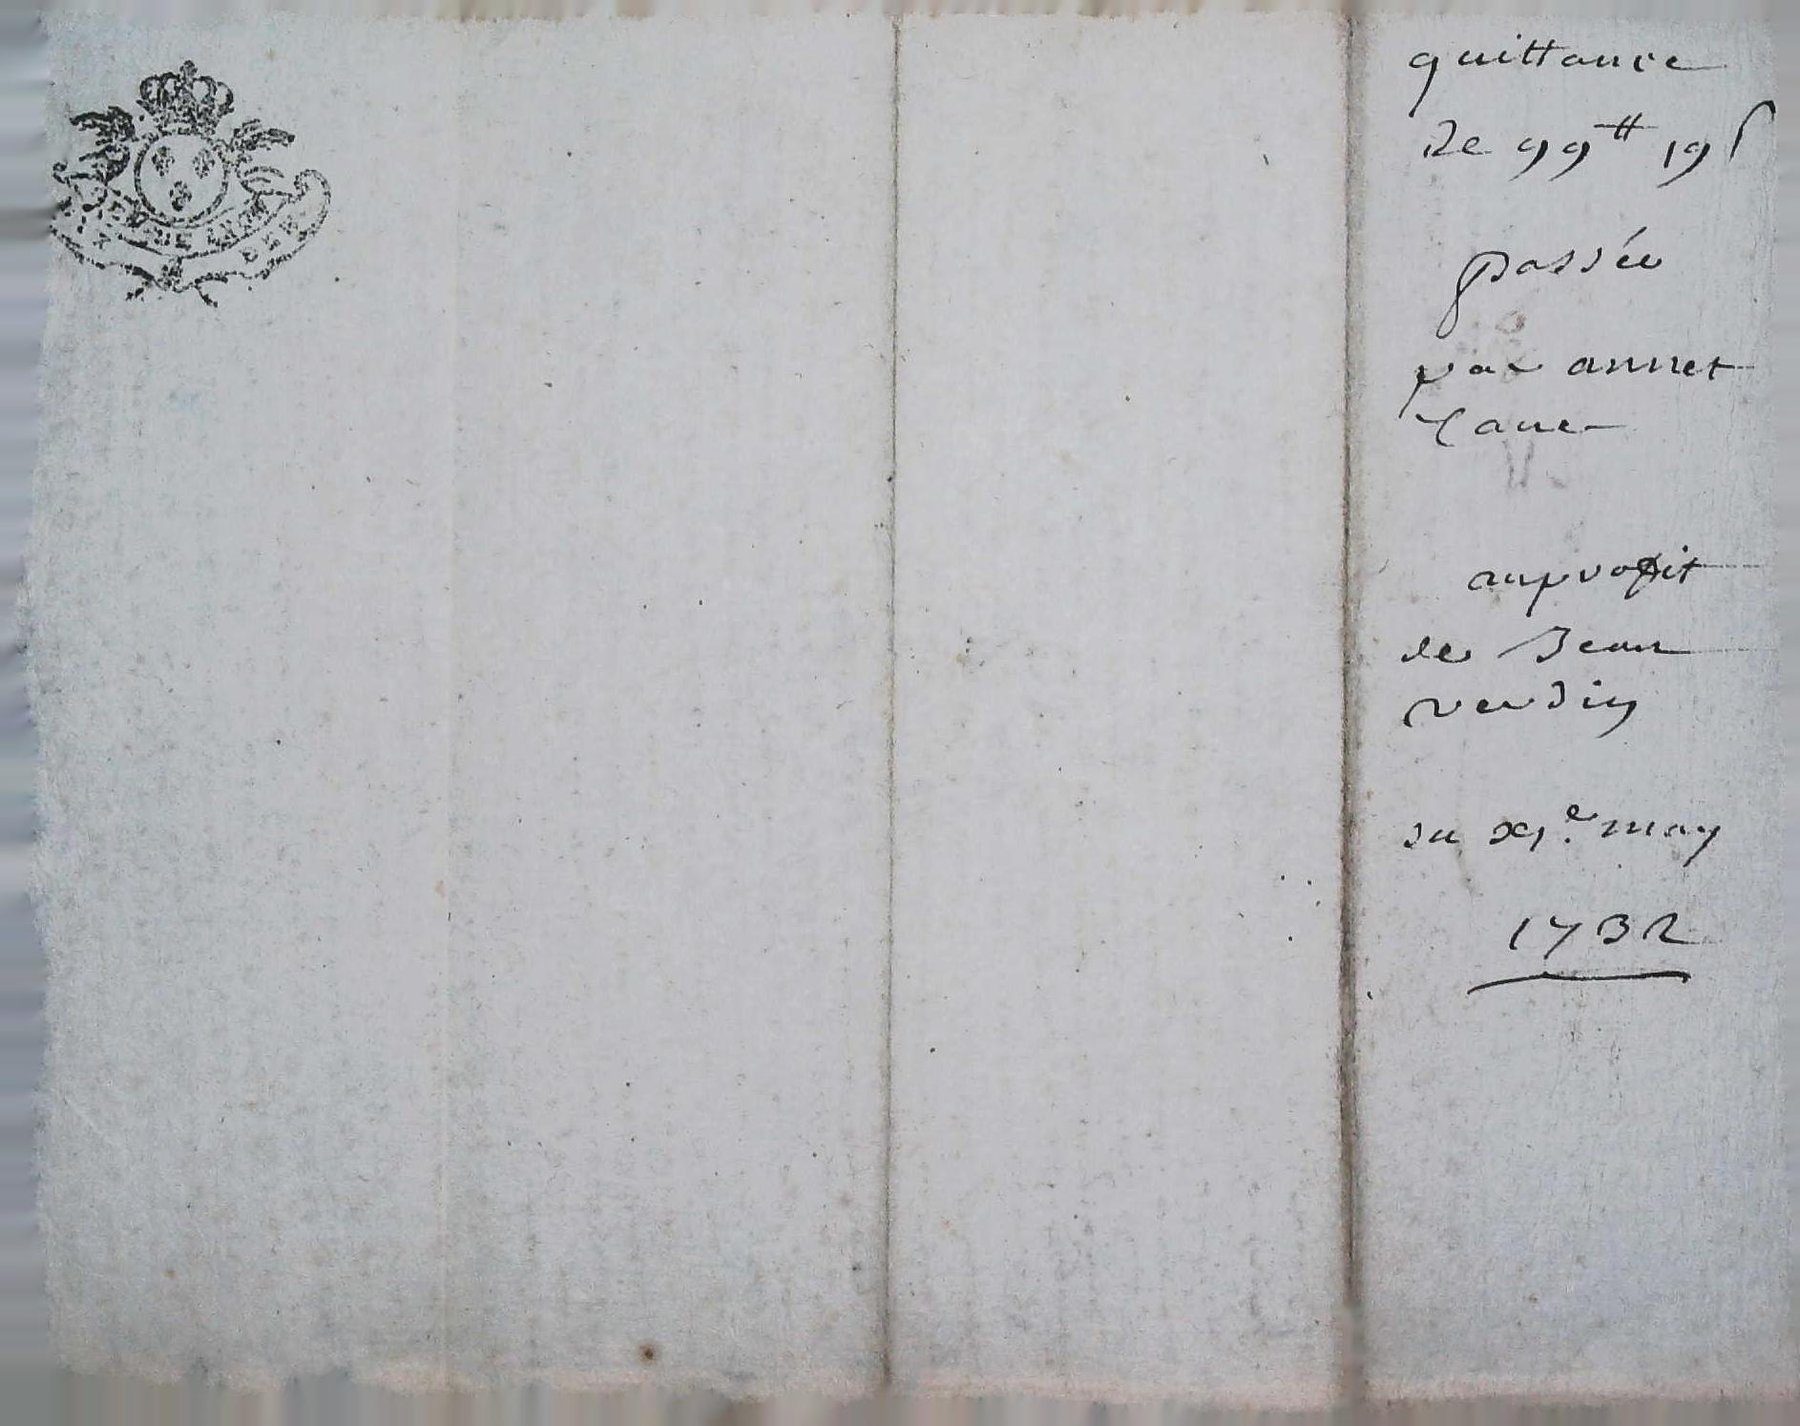 quittance
de 99tt 19s
passée
par annet
au profit
de Jean
verdin
du xie. may
1732